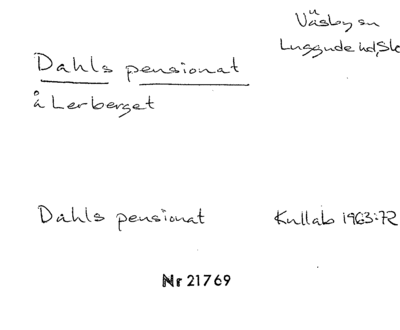 Väsby sn
Luggude hd, Sk
Dahls pensionat
å Lerberget
Dahls pensionat Kullab 1963:72
Nr 21769